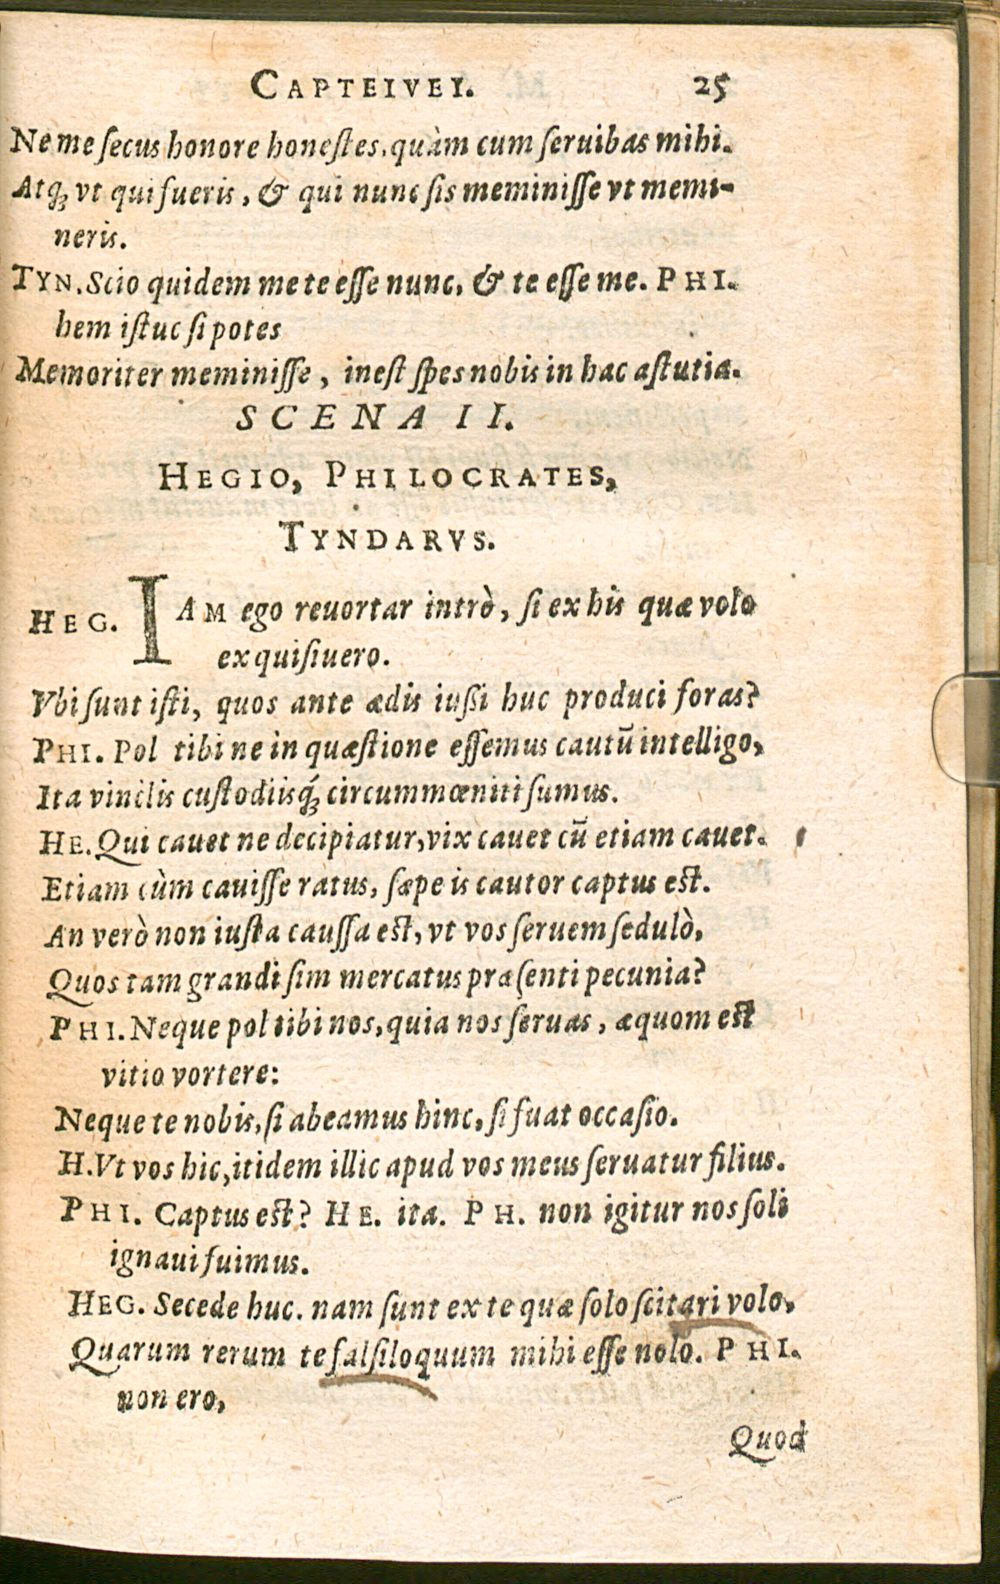 CAPTEIVEI. 25
Ne me ſecus honore honeſtes, quàm cum ſeruibas mihi.
Atq́ʒ vt qui fueris, & qui nunc ſis meminiſſe vt memi-
neris.
TYN. Scio quidem me te eſſe nunc, & te eſſe me. PHI.
hem iſtuc ſi potes
Memoriter meminiſſe, ineſt ſpes nobis in hac aſtutia.
SCENA II.
HEGIO, PHILOCRATES,
TYNDARVS.
HEG. IAM ego reuortar intrò, ſi ex his quæ volo
exquiſiuero.
Vbi ſunt iſti, quos ante ædis iuſſi huc produci foras?
PHI. Pol tibi ne in quæſtione eſſemus cautũ intelligo,
Ita vinclis cuſtodiisq́ʒ circummœniti ſumus.
HE. Qui cauet ne decipiatur, vix cauet cũ etiam cauet.
Etiam cùm cauiſſe ratus, ſæpe is cautor captus eſt.
An verò non iuſta cauſſa eſt, vt vos ſeruem ſedulò,
Quos tam grandi ſim mercatus præſenti pecunia?
PHI. Neque pol tibi nos, quia nos ſeruas, æquom eſt
vitio vortere:
Neque te nobis, ſi abeamus hinc, ſi fuat occaſio.
H. Vt vos hic, itidem illic apud vos meus ſeruatur filius.
PHI. Captus eſt? HE. ita. PH. non igitur nos ſoli
ignaui fuimus.
HEG. Secede huc. nam ſunt ex te quæ ſolo ſcitari volo,
Quarum rerum te falſiloquum mihi eſſe nolo. PHI.
non ero,
Quod